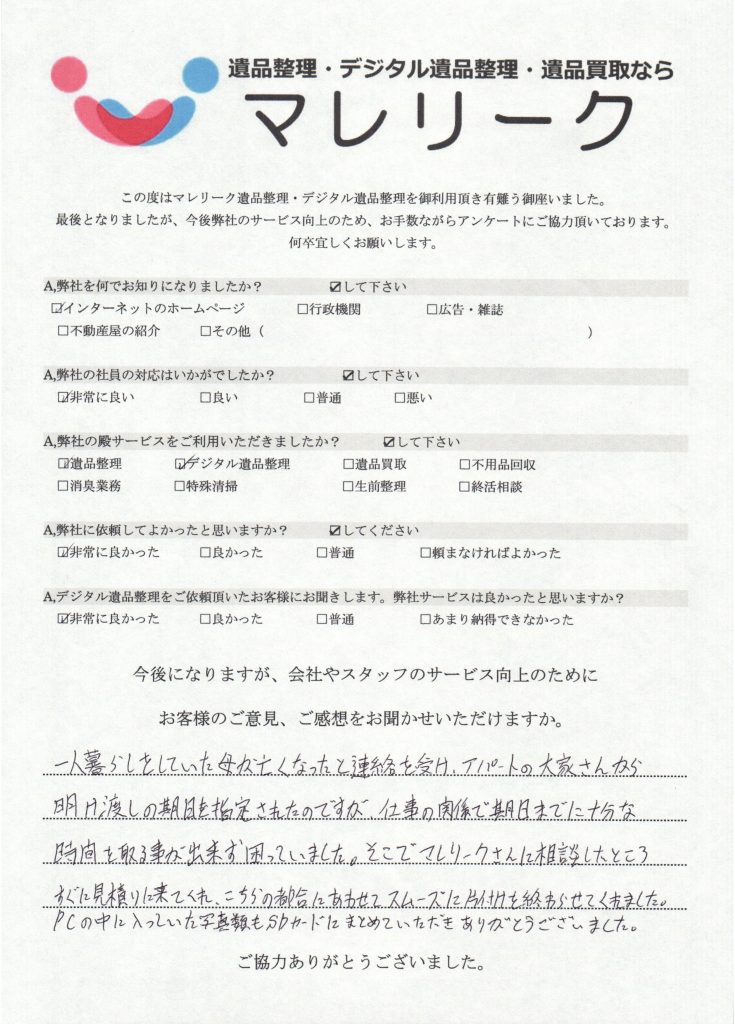 遺品整理・デジタル遺品整理・遺品買取なら
マレリーク
この度はマレリーク遺品整理・デジタル遺品整理を御利用頂き有難う御座いました。
最後となりましたが、今後弊社のサービス向上のため、お手数ながらアンケートにご協力頂いております。
何卒宜しくお願いします。
A,弊社を何でお知りになりましたか？ ☑して下さい
☑インターネットのホームページ □行政機関 □広告・雑誌
□不動産屋の紹介 □その他（ ）
A,弊社の社員の対応はいかがでしたか？ ☑して下さい
☑非常に良い □良い □普通 □悪い
A,弊社の殿サービスをご利用いただきましたか？ ☑して下さい
☑遺品整理 ☑デジタル遺品整理 □遺品買取 □不用品回収
□消臭業務 □特殊清掃 □生前整理 □終活相談
A,弊社に依頼してよかったと思いますか？ ☑してください
☑非常に良かった □良かった □普通 □頼まなければよかった
A,デジタル遺品整理をご依頼頂いたお客様にお聞きします。弊社サービスは良かったと思いますか？
☑非常に良かった □良かった □普通 □あまり納得できなかった
今後になりますが、会社やスタッフのサービス向上のために
お客様のご意見、ご感想をお聞かせいただけますか。
一人暮らしをしていた母が亡くなったと連絡を受け、アパートの大家さんから
明け渡しの期日を指定されたのですが、仕事の関係で期日までに十分な
時間を取る事が出来ず困っていました。そこでマレリークさんに相談したところ
すぐに見積りに来てくれ、こちらの都合にあわせてスムーズに片付けを終わらせてくれました。
PCの中に入っていた写真類もSDカードにまとめていただきありがとうございました。
ご協力ありがとうございました。